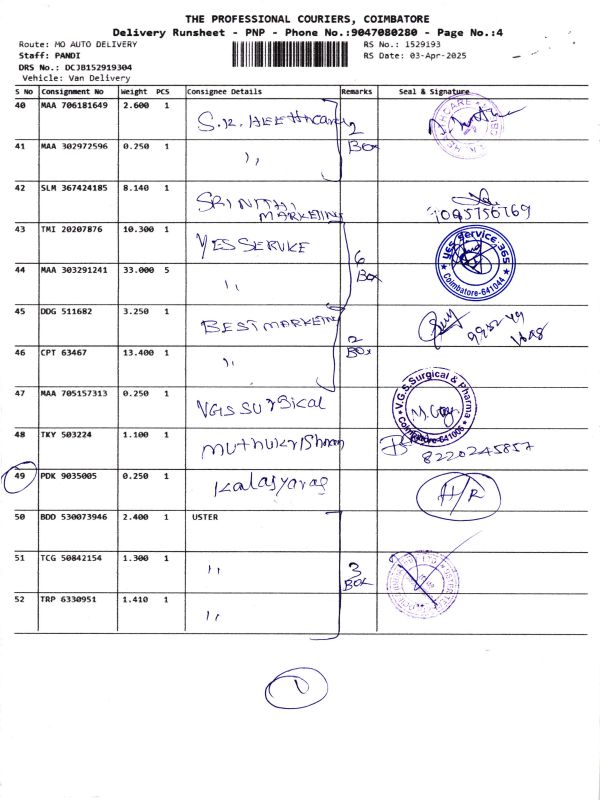 THE PROFESSIONAL COURIERS, COIMBATORE
Delivery Runsheet - PNP - Phone No.:9047080280 - Page No.:4
Route: MO AUTO DELIVERY RS No.: 1529193
Staff: PANDI RS Date: 03-Apr-2025
DRS No.: DCJB152919304
Vehicle: Van Delivery
S No Consignment No Weight PCS Consignee Details Remarks Seal & Signature
40 MAA 706181649 2.600 1 S.K. HEEthcare 2 BOX
41 MAA 302972596 0.250 1 ,,
42 SLM 367424185 8.140 1 SRI NITHI MARKETING
43 TMI 20207876 10.300 1 YES SERVICE 6 BOX yes service.365 Coimbatore-641044
44 MAA 303291241 33.000 5 ,,
45 DDG 511682 3.250 1 BEST MARKETING 2 BOX
46 CPT 63467 13.400 1 ,,
47 MAA 705157313 0.250 1 VGS SURgical V.G.S.Surgical & Pharma Coimbatore-641006
48 TKY 503224 1.100 1 muthukrishnan 8220245857
49 PDK 9035005 0.250 1 H/R
50 BDD 530073946 2.400 1 USTER 3 BOX
51 TCG 50842154 1.300 1 ,,
52 TRP 6330951 1.410 1 ,,
1